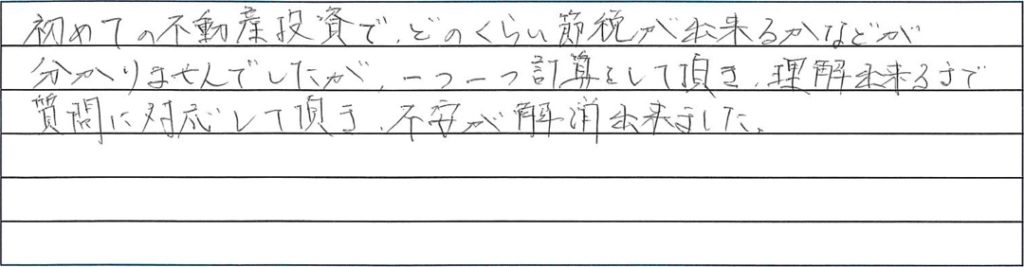 初めての不動産投資で、どのくらい節税が出来るかなどが
分かりませんでしたが、一つ一つ計算をして頂き、理解出来るまで
質問に対応して頂き、不安が解消出来ました。